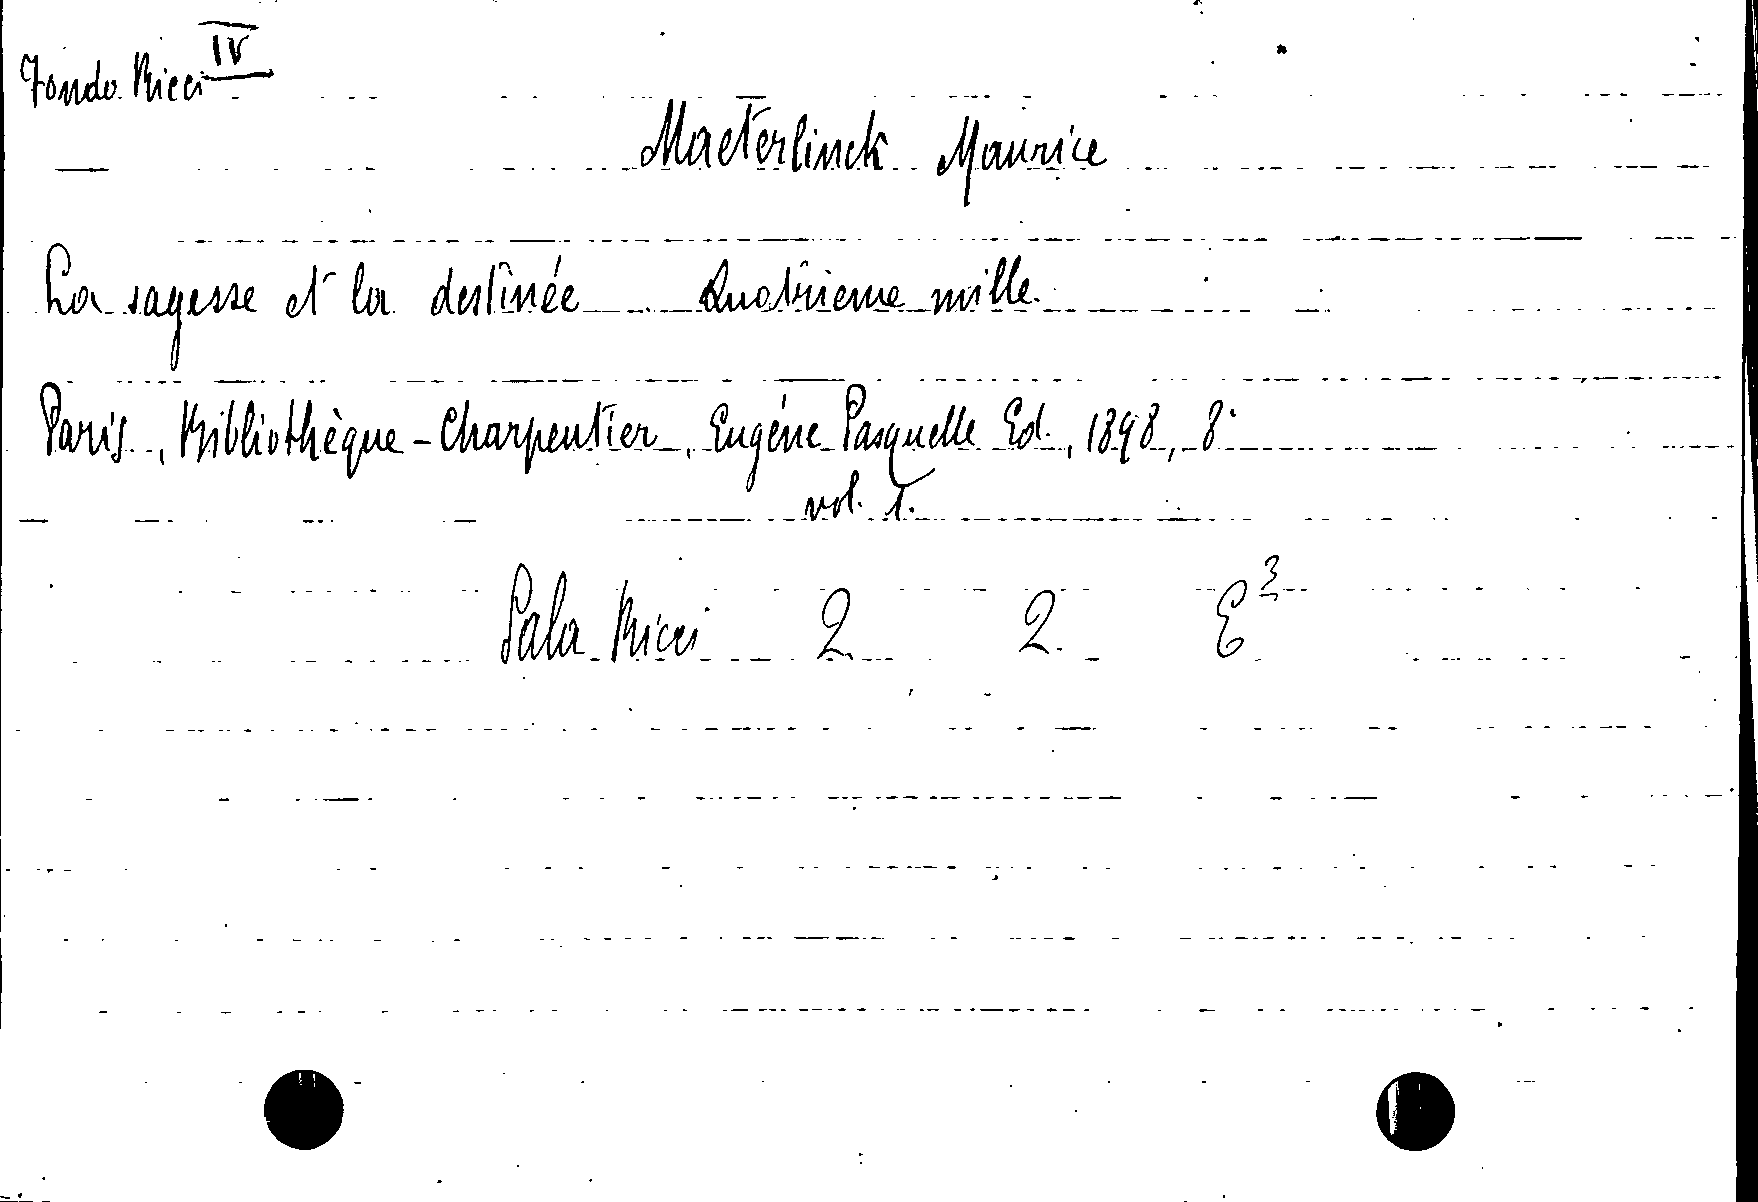 Fondo Ricci IV
Maeterlinck Maurice
La sagesse et la destinée Quatrieme mille.
Paris, Bibliothèque-Charpentier, Eugéne Pasquelle Ed., 1898, 8°
vol. 1.
Sala Ricci 2 2. E³